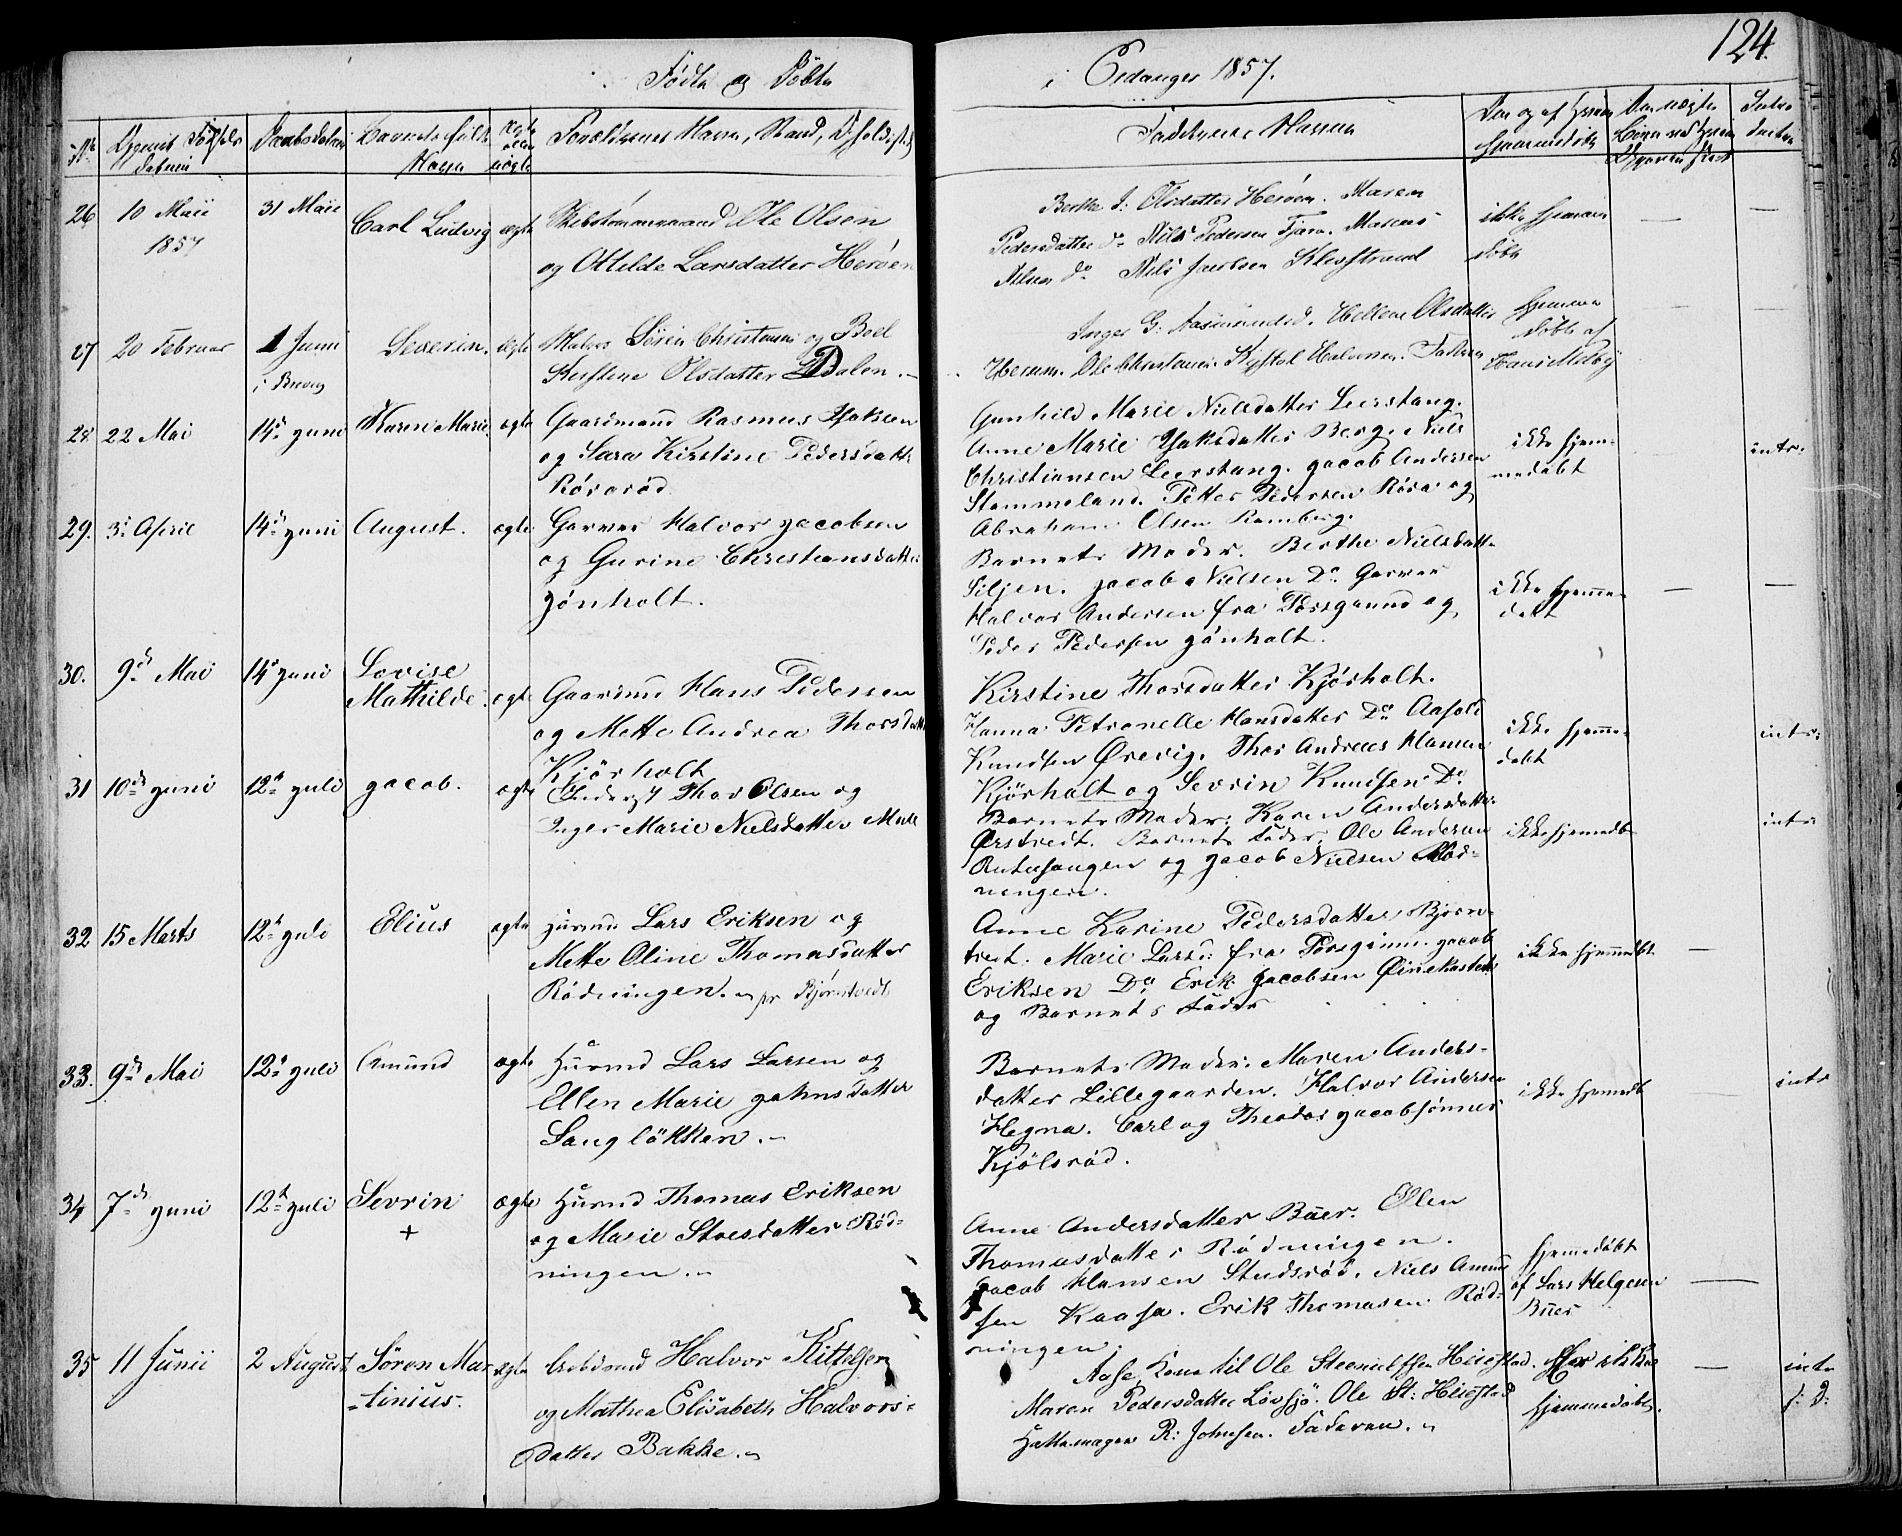 124.
Födte og Döbte
i Eidanger 1857.
No
Barnets fulde Navn
Forældrenes Navn, Stand, Opholdssted
Faddernes Navne
26 10 Maii 1857
31 Maii
Carl Ludvig
ægte
Ole Olsen
og Ottilde Larsdatter Heröen
Berthe J: Olsdatter Heröen. Maren
Pedersdatter do Nils Pedersen Marcus
Nilsen do Nils Jacobsen Klevstrand
ikke hjemme
döbt
27 20 Februar
1 Juni
i Brevig
Severin.
ægte
Sören Christensen og Boel
Kirstine Olsdatter Dalen.
Inger G: Aasmundsd. Hellene Olsdatter
Herum. Ole Christensen. Kystol Halvorsen. Faderen
hjemme
döbt af
Hans Melby
28 22 Mai
14de Juni
Karen Marie
ægte
Gaardmand Rasmus Isaksen
og Sara Kirstine Pedersdatter
Röraröd
Gunhild Marie Nielsdatter Leerstang.
Anne Marie Isaksdatter Berg. Niels
Christiansen Leerstang. Jacob Andersen
Stammeland. Petter Pedersen Röra og
Abraham Olsen Ramberg.
ikke hjem-
medöbt
intr.
29. 3de April
14de Juni
August.
ægte
Garver Halvor Jacobsen
og Gurine Christensdatter
Jönholt.
Barnets Moder. Berthe Nielsdatt.
Siljen. Jacob Nielsen Do Garver
Halvor Andersen fra Porsgrund og
Peder Pedersen Jönholt.
ikke hjemme-
döbt
30. 9de Mai
14de Juni
Lovise
Mathilde
ægte
Gaardmd Hans Pedersen
og Mette Andrea Thorsdatter
Kjörholt
Kirstine Thorsdatter Kjörholt.
Hanna Petronelle Hansdatter Do
Knudsen Örevig. Thor Andreas Hansen
Kjörholt og Sevrin Knudsen Do
ikke hjemme-
döbt
intr:
31 10de Juni
12te Juli
Jacob.
ægte
Inderst Thor Olsen og
Inger Marie Nielsdatter Mule
Barnets Moder. Karen Andersdatter
Örstvedt. Barnets Fader. Ole Andersen
og Jacob Nielsen Röd-
ningen.
ikke hjemmedb
intr
32 15 Marts
12te Juli
Elius
ægte
Huusmd Lars Eriksen og
Mette Oline Thomasdatter
Rödningen. pr Björntvedt
Anne Karine Pedersdatter Björn-
tvedt. Marie Larsd: fra Porsgrund. Jacob
Eriksen Do Erik Jacobsen
og Barnets Fader
ikke hjemmedbt
33. 9de Mai
12te Juli
Amund
ægte
Huusmd Lars Larsen og
Ellen Marie Johnsdatter
Langlökken.
Barnets Moder. Maren Anders-
datter Lillegaarden. Halvor Andersen
Hegna. Carl og Theodor Jacobsönner
Kjölsröd.
ikke hjemmedb
intr
34 7de Juni
12te Juli
Sevrin
+
ægte
Huusmd Thomas Eriksen
og Marie Stoesdatter Röd-
ningen.
Anne Andersdatter Büer. Ellen
Thomasdatter Rödningen.
Jacob Hansen Studsröd. Niels Amund
sen Kaasa. Erik Thomasen Röd-
ningen.
hjemedöbt
af Lars Helgesen
Büer
35 11 Junii
2 August
Sören Mar
tinius.
ægte
Halvor Kittilsen
og Mathea Elisabeth Halvors-
datter Bakke.
Aase Kone til Ole Steenulfsen Heiestad.
Maren Pedersdatter Lövsjö. Ole St: Heiestad
Hattemager R: Johnsen. Faderen.
ikke
hjemmedöbt.
intr